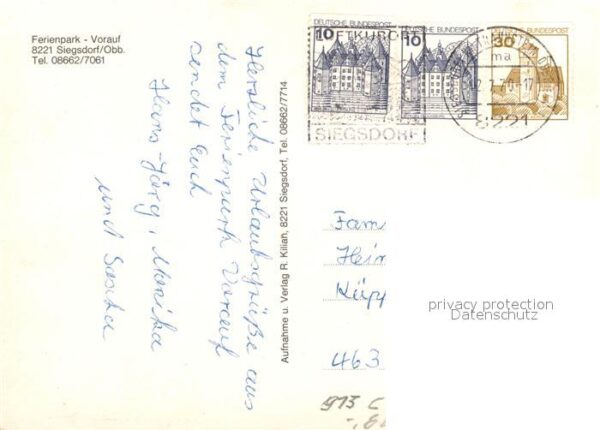 Ferienpark - Vorauf
8221 Siegsdorf/Obb.
Tel. 08662/7061
Herzliche Urlaubsgrüße aus
dem Ferienpark Vorauf
sendet Euch
Hans-Jörg, Monika
und Sascha
Aufnahme u. Verlag R. Kilian, 8221 Siegsdorf, Tel. 08662/7714
DEUTSCHE BUNDESPOST
10
DEUTSCHE BUNDESPOST
10
DEUTSCHE BUNDESPOST
30
LUFTKURORT
SIEGSDORF
ma
8221
Fam
Hein
Küpp
463
privacy protection
Datenschutz